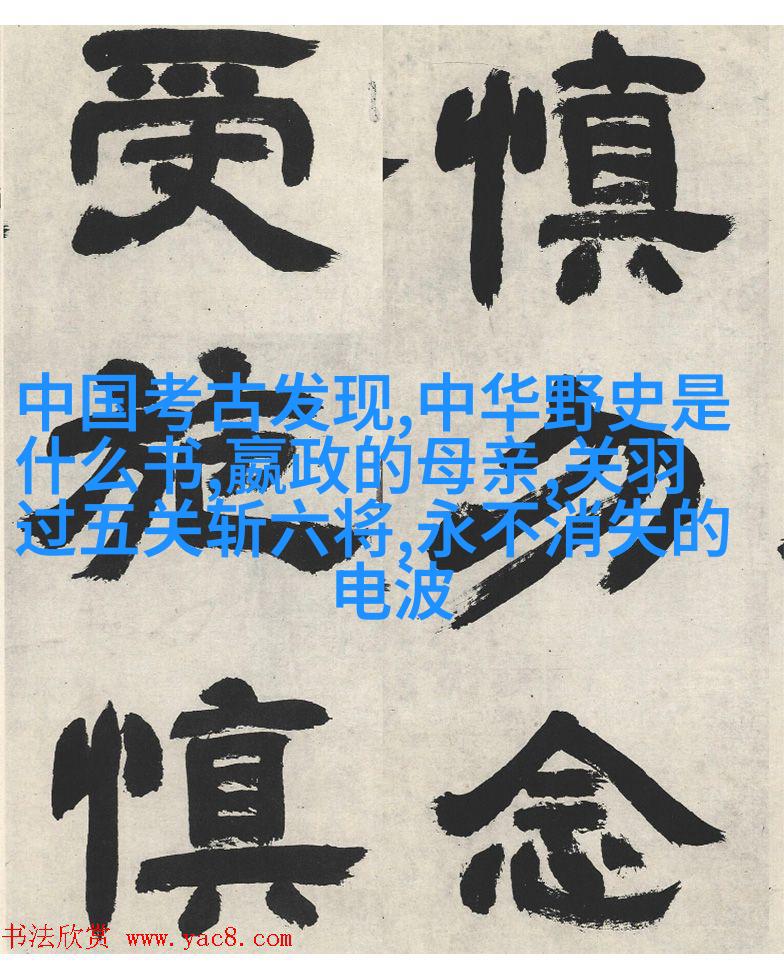 慎勿念
受施慎
中国考古发现,中华野史是
什么书,嬴政的母亲,关羽
过五关斩六将,永不消失的
电波
书法欣赏 www.yac8.com